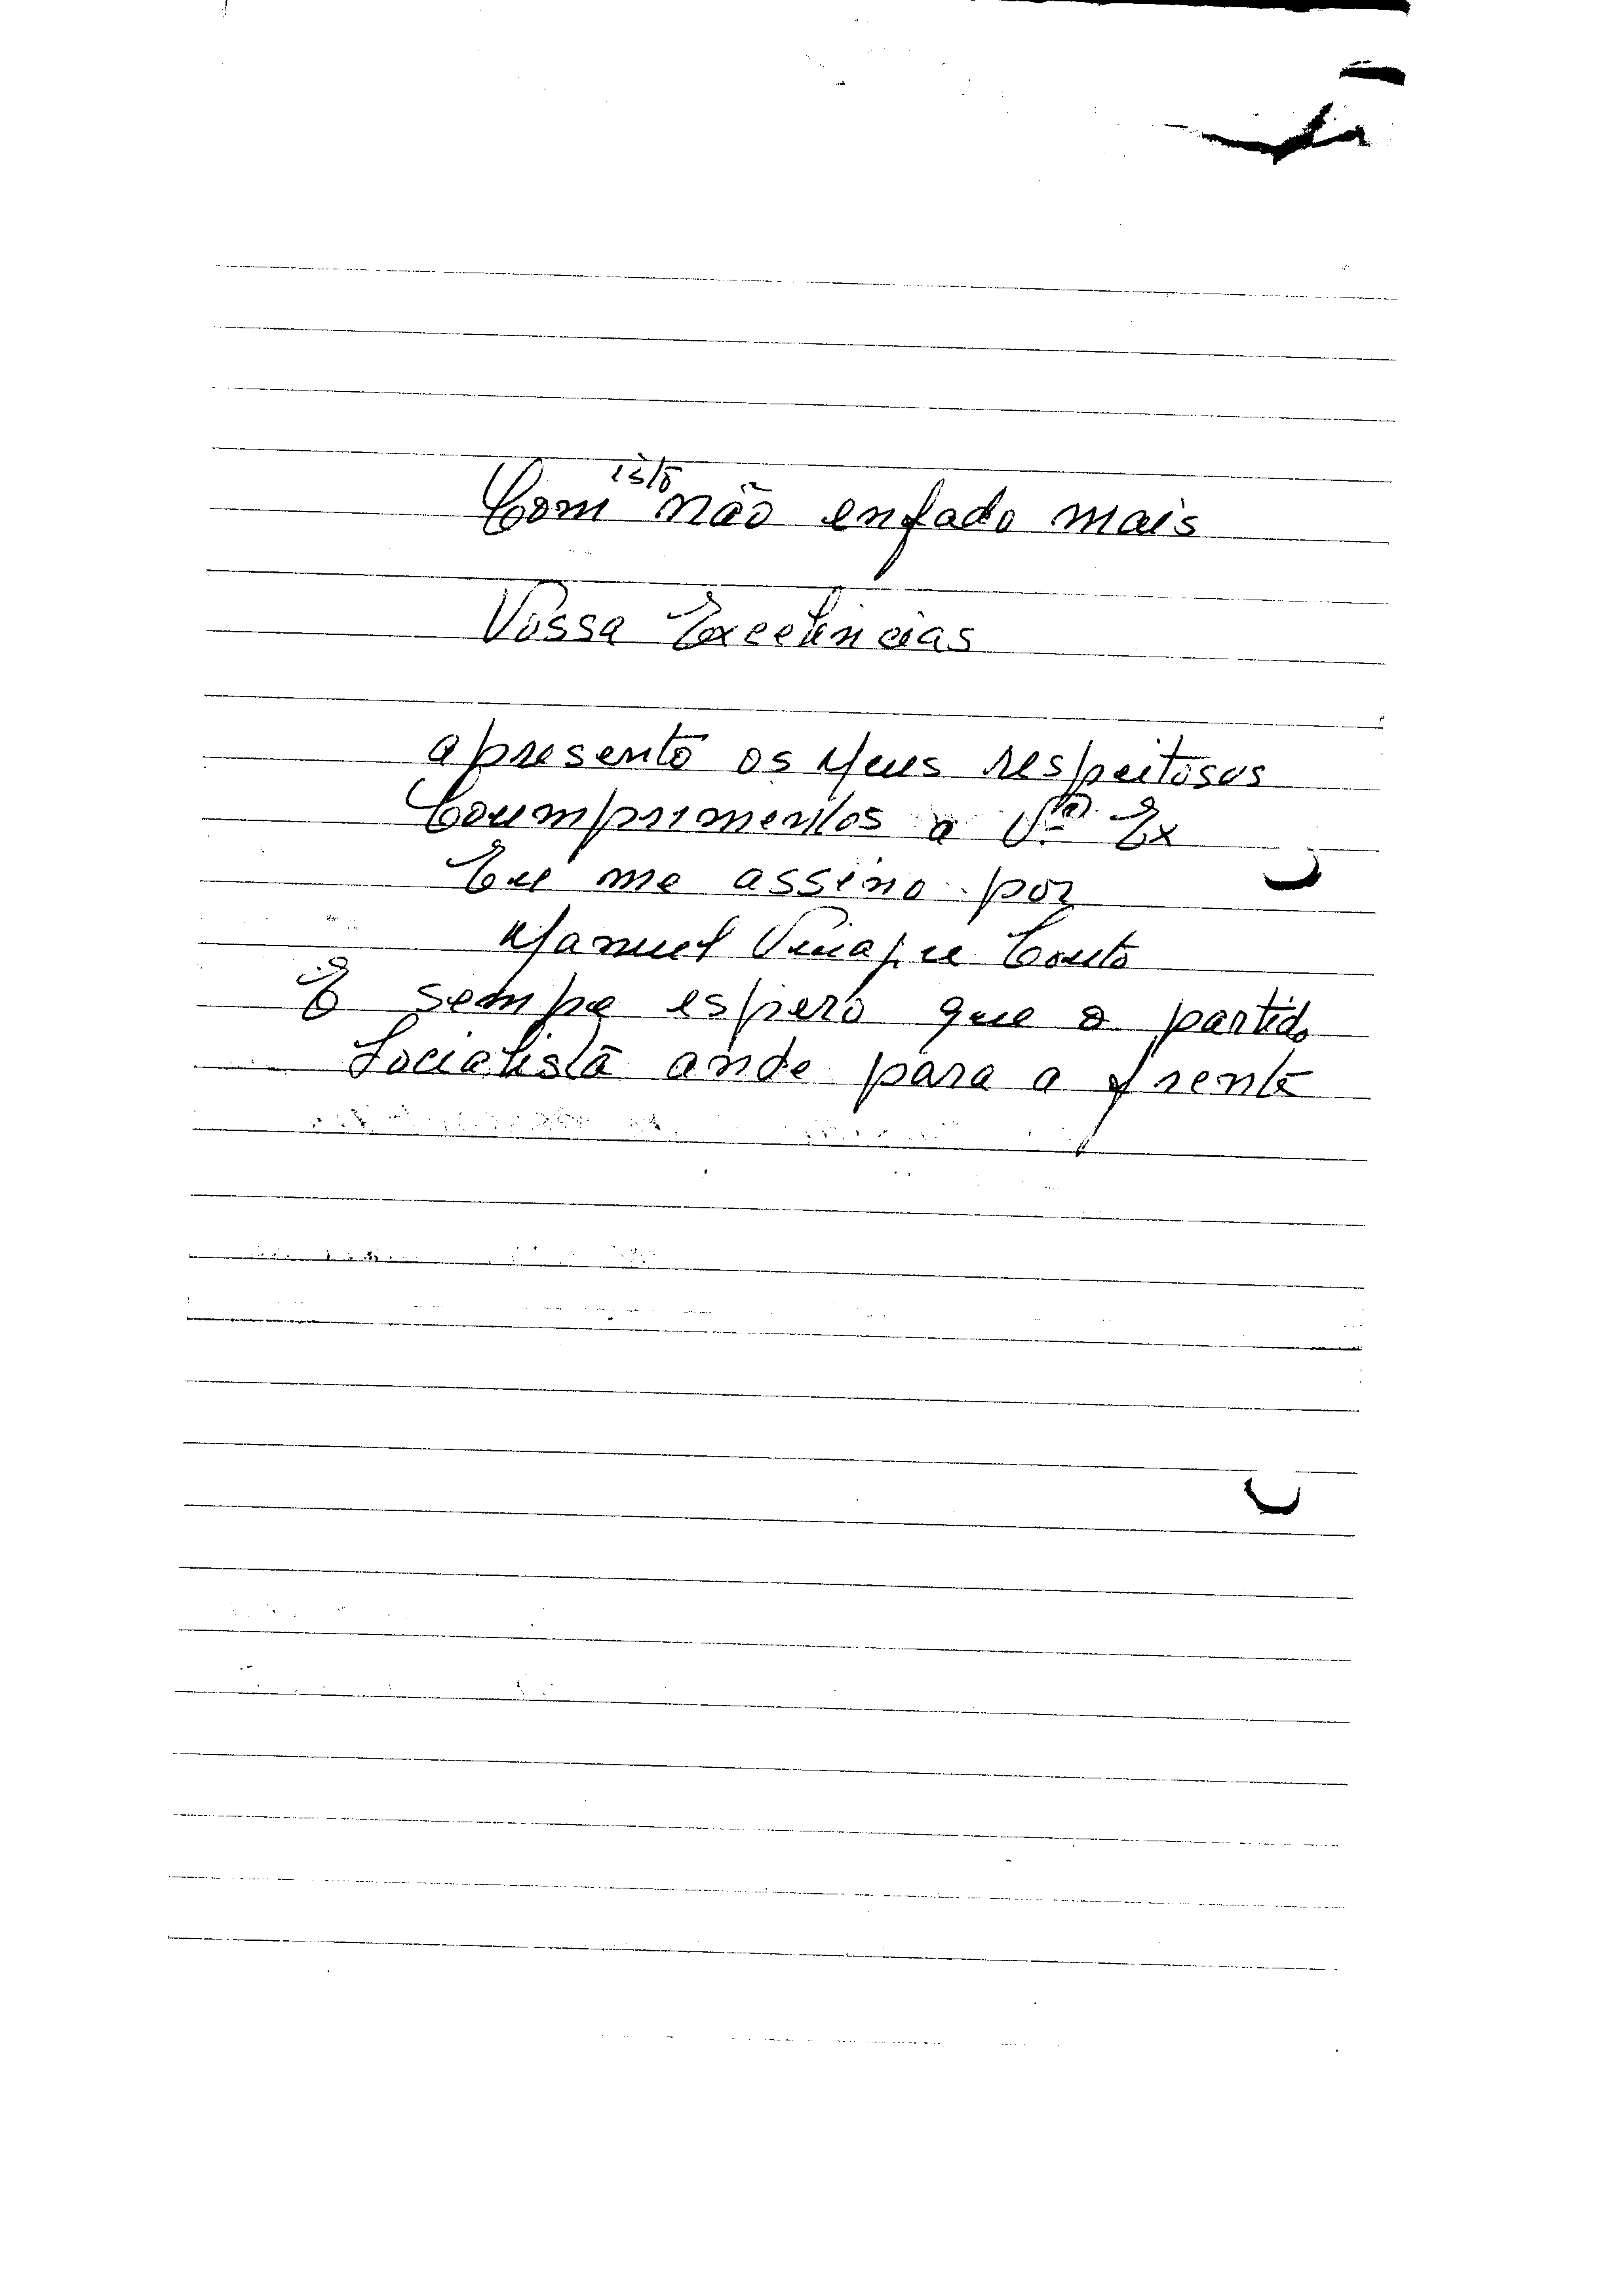 Com isto não enfado mais
Vossa Excelências
apresento os Meus respeitosos
Coumprimentos a V.ª Ex
Eu me assino por
Manuel Couto
E sempe espero que o partido
Socialista ande para a frente